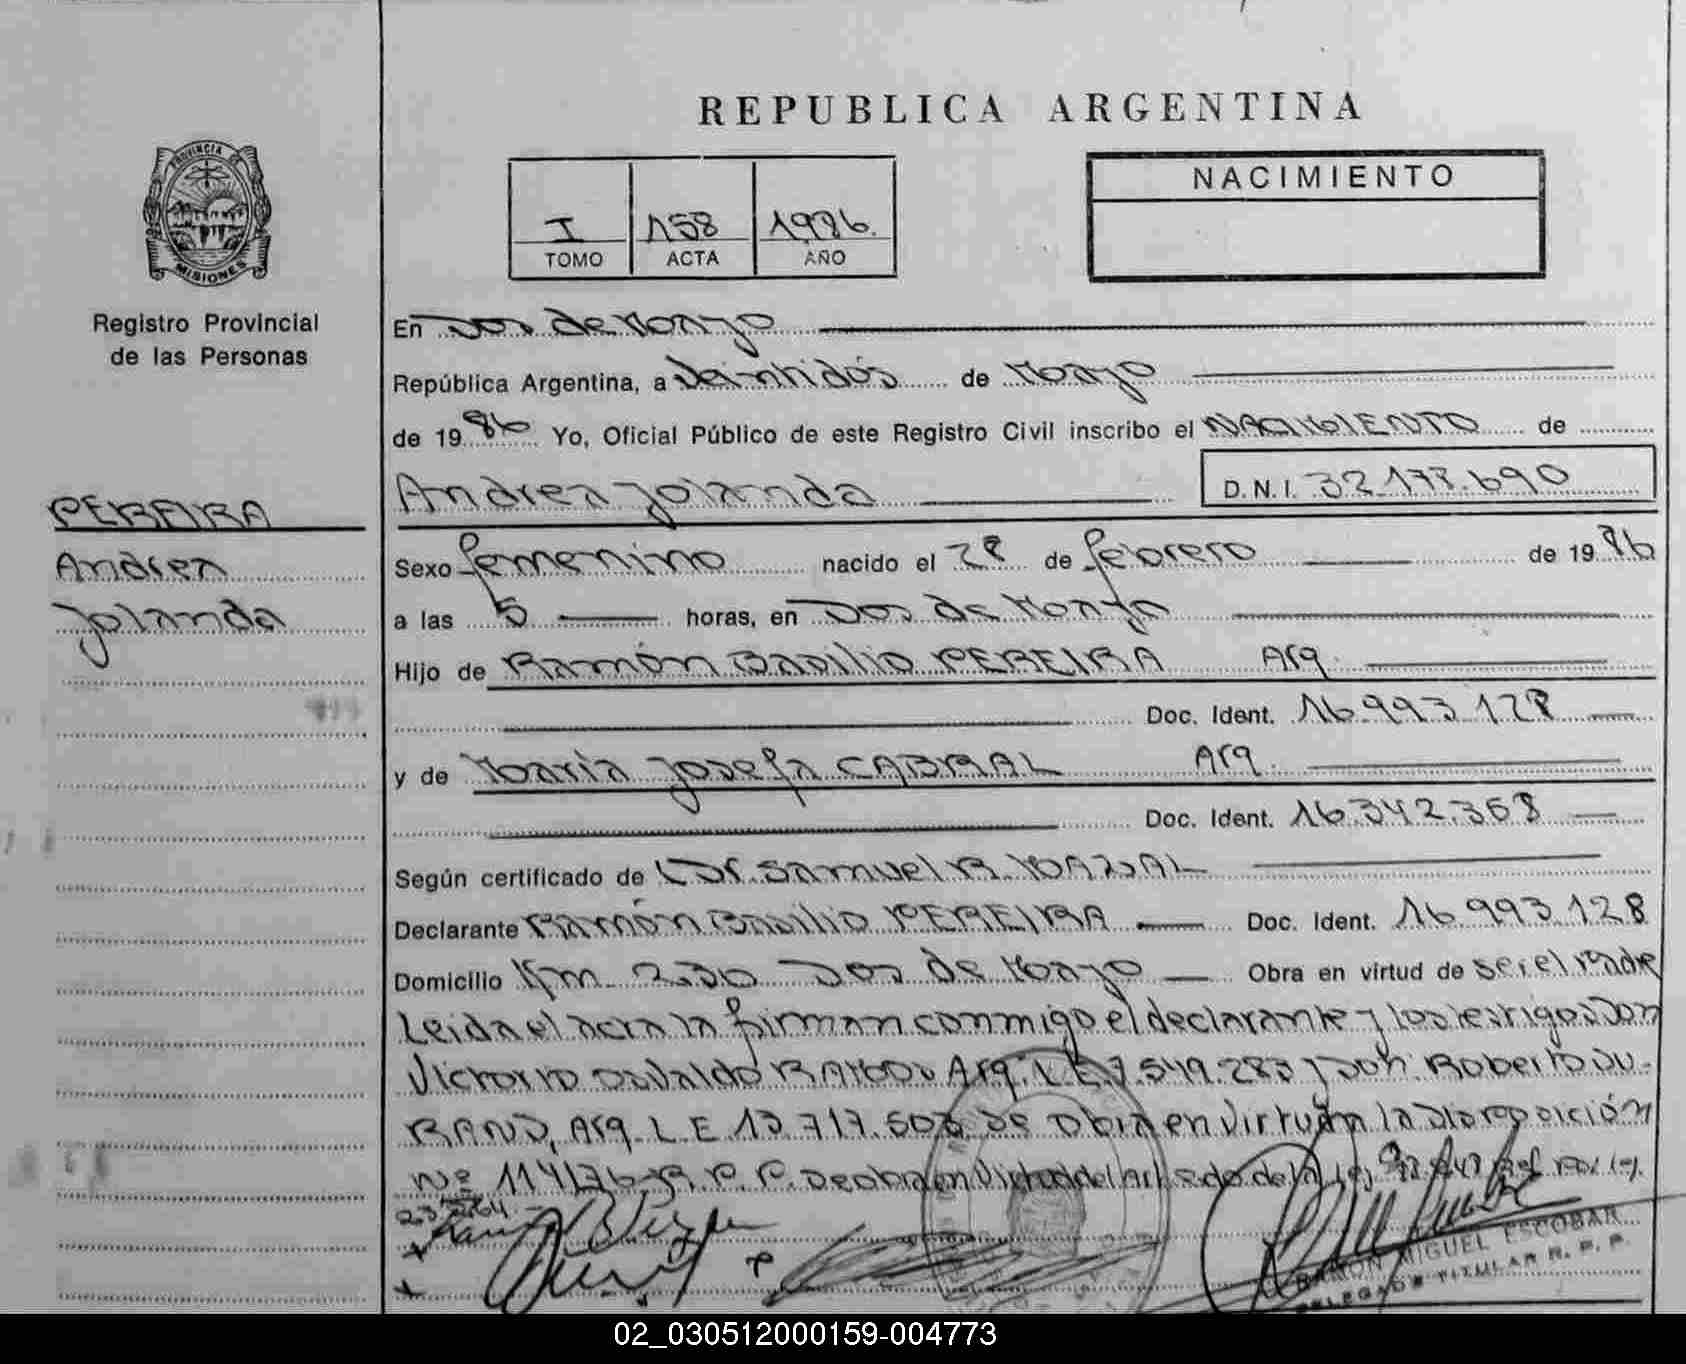 REPUBLICA ARGENTINA
PROVINCIA DE
MISIONES
Registro Provincial
de las Personas
I 158 1986.
TOMO ACTA AÑO
NACIMIENTO
En Dos de Mayo
República Argentina, a Veintidós de Mayo
de 1986 Yo, Oficial Público de este Registro Civil inscribo el NACIMIENTO de
Andrea Yolanda D.N.I. 32.177.690
PEREIRA
Andrea
Yolanda
Sexo femenino nacido el 28 de febrero de 1986
a las 5 horas, en Dos de Mayo
Hijo de Ramón Basilio PEREIRA Arg.
Doc. Ident. 16.993.128
y de María Josefa CABRAL Arg.
Doc. Ident. 16.342.368
Según certificado de Dr. Samuel R.
Declarante Ramón Basilio PEREIRA Doc. Ident. 16.993.128
Domicilio Km 230 Dos de Mayo Obra en virtud de ser el Padre
Leida el acta la firman conmigo el declarante y los testigos Don
Victorio Osvaldo RAMOS Arg. L.E 7.549.283 y Don Roberto DU-
RAND, Arg. L E 13.717.503 Se Obra en Virtud a la Disposición
Nº 114/76-R.P.P. Se obra en Virtud del Art. 2do de la Ley
RAMON MIGUEL ESCOBAR
DELEGADO TITULAR R. P. P.
02_030512000159-004773